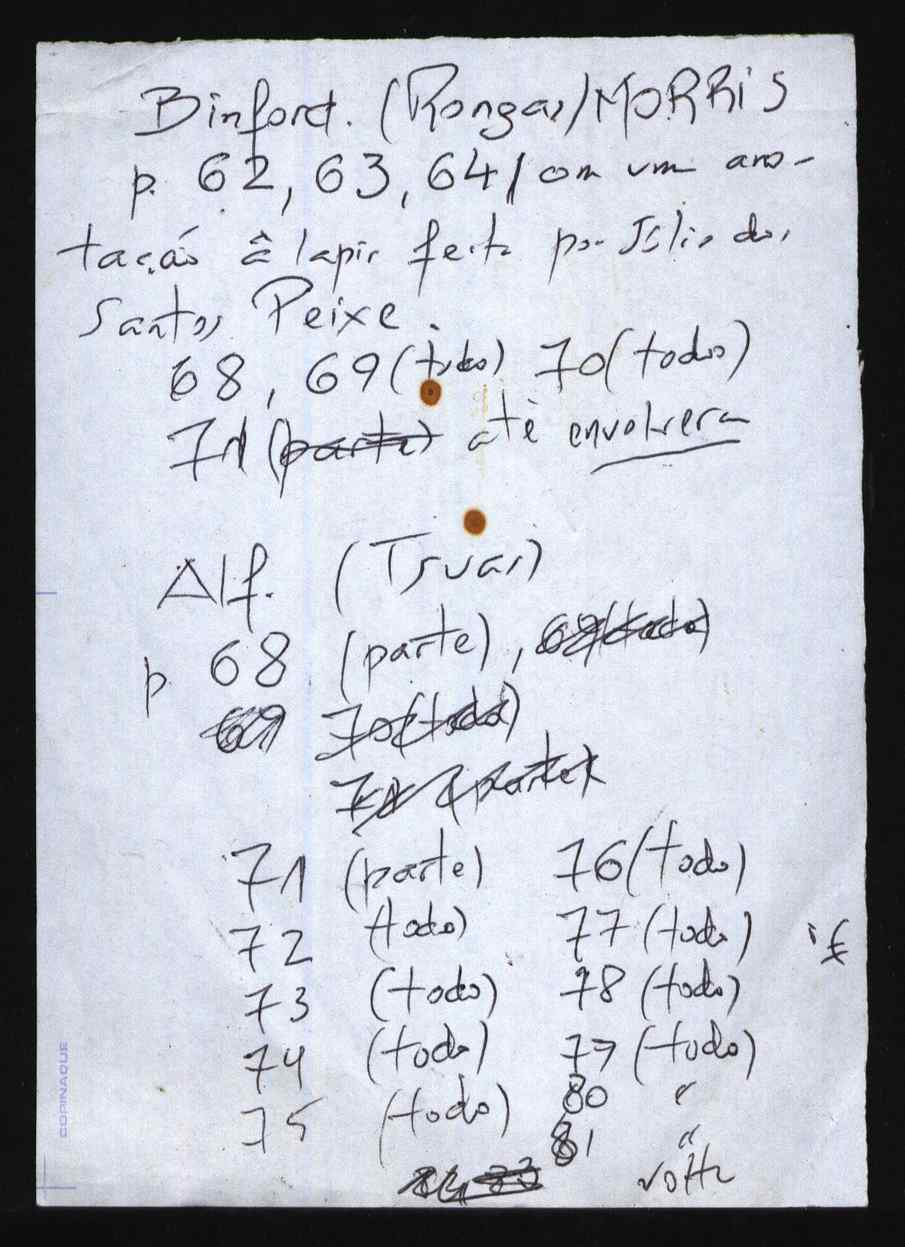 Binford. (Rongas) MORRIS
p. 62, 63, 64 / com um ano-
tação â lapis feita por Júlio dos
Santos Peixe.
68, 69 (todo) 70 (todo)
71 (parte) até envolvera
Alf. (Tsuas)
p 68 (parte), 69 (todo)
69 70 (todo)
71 (parte)
71 (parte) 76 (todo)
72 (todo) 77 (todo)
73 (todo) 78 (todo)
74 (todo) 79 (todo)
75 (todo) 80 "
81 "
volta
COPINAQUE